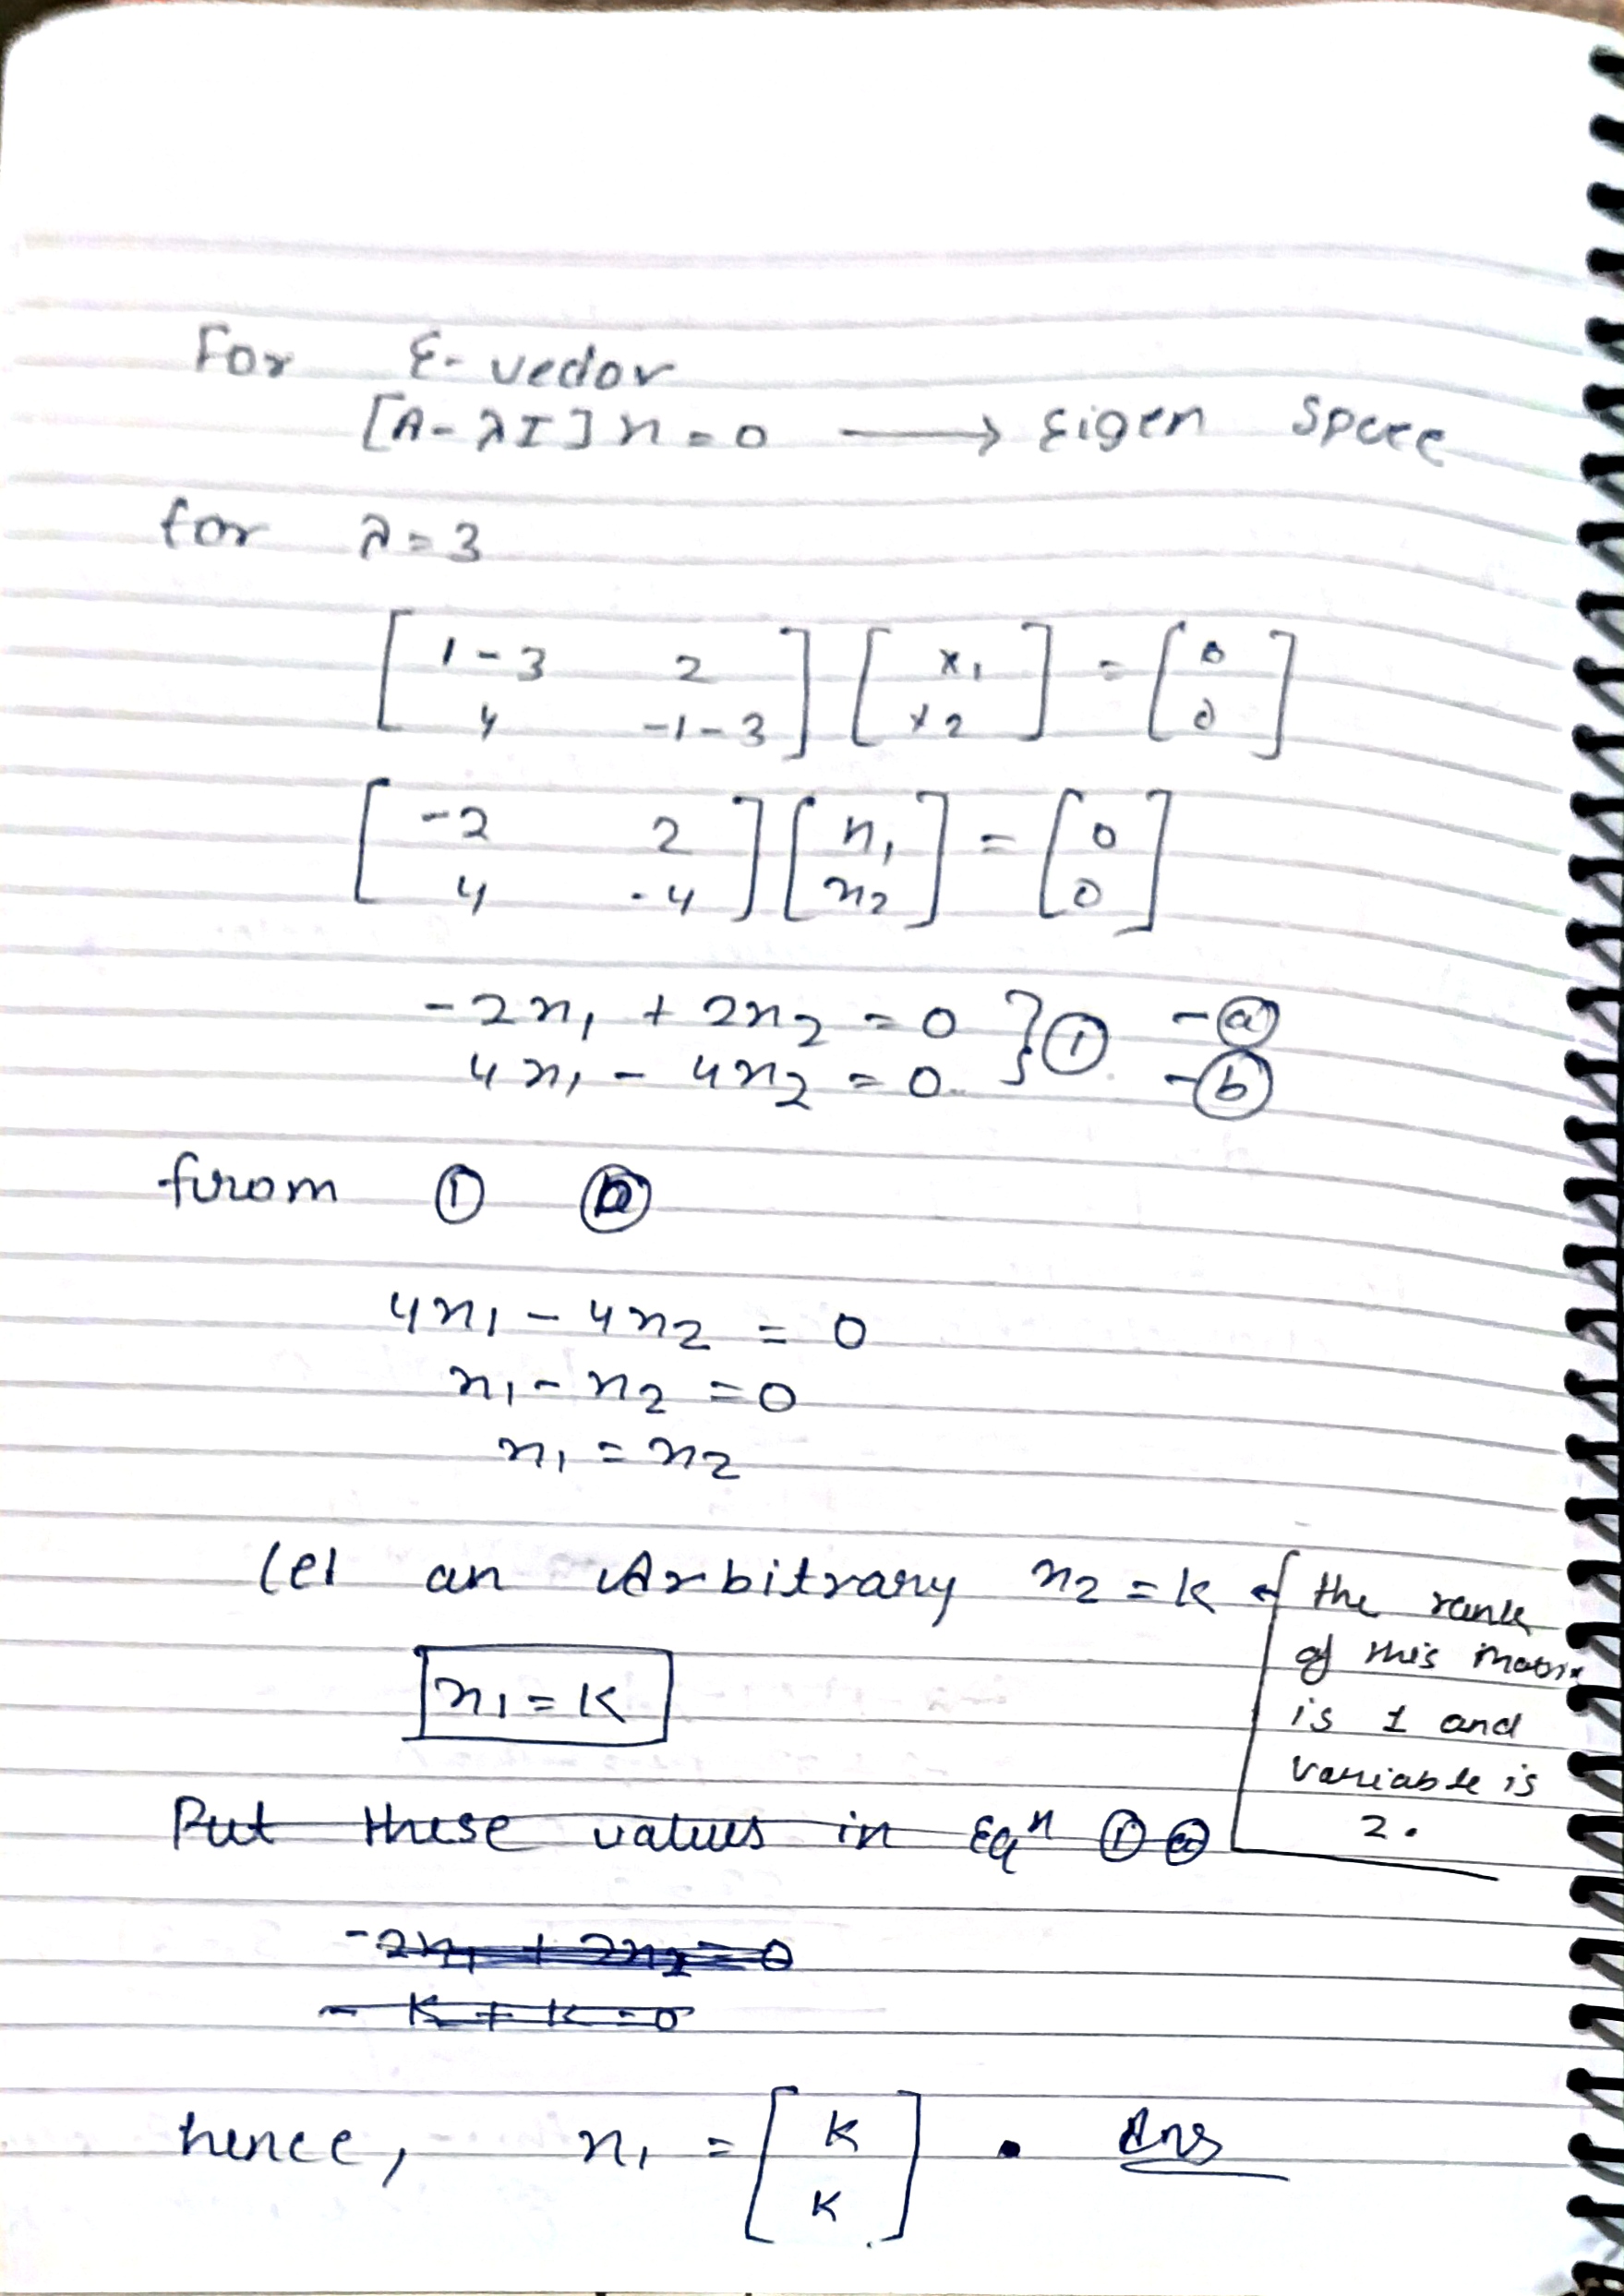 For E-vector
[A-λI]x=0 → Eigen Space
for λ=3
[1-3 2] [x1] = [0]
[4 -1-3] [x2] [0]
[-2 2] [x1] = [0]
[4 -4] [x2] [0]
-2x1 + 2x2 = 0 } ① -ⓐ
4x1 - 4x2 = 0 -ⓑ
from ① ⓑ
4x1 - 4x2 = 0
x1 - x2 = 0
x1 = x2
let an Arbitrary x2 = k
the rank
of this matrix
is 1 and
variable is
2.
x1 = k
Put these values in Eqn ① ⓐ
-2x1 + 2x2 = 0
- k + k = 0
hence, x1 = [k] . Ans
[k]